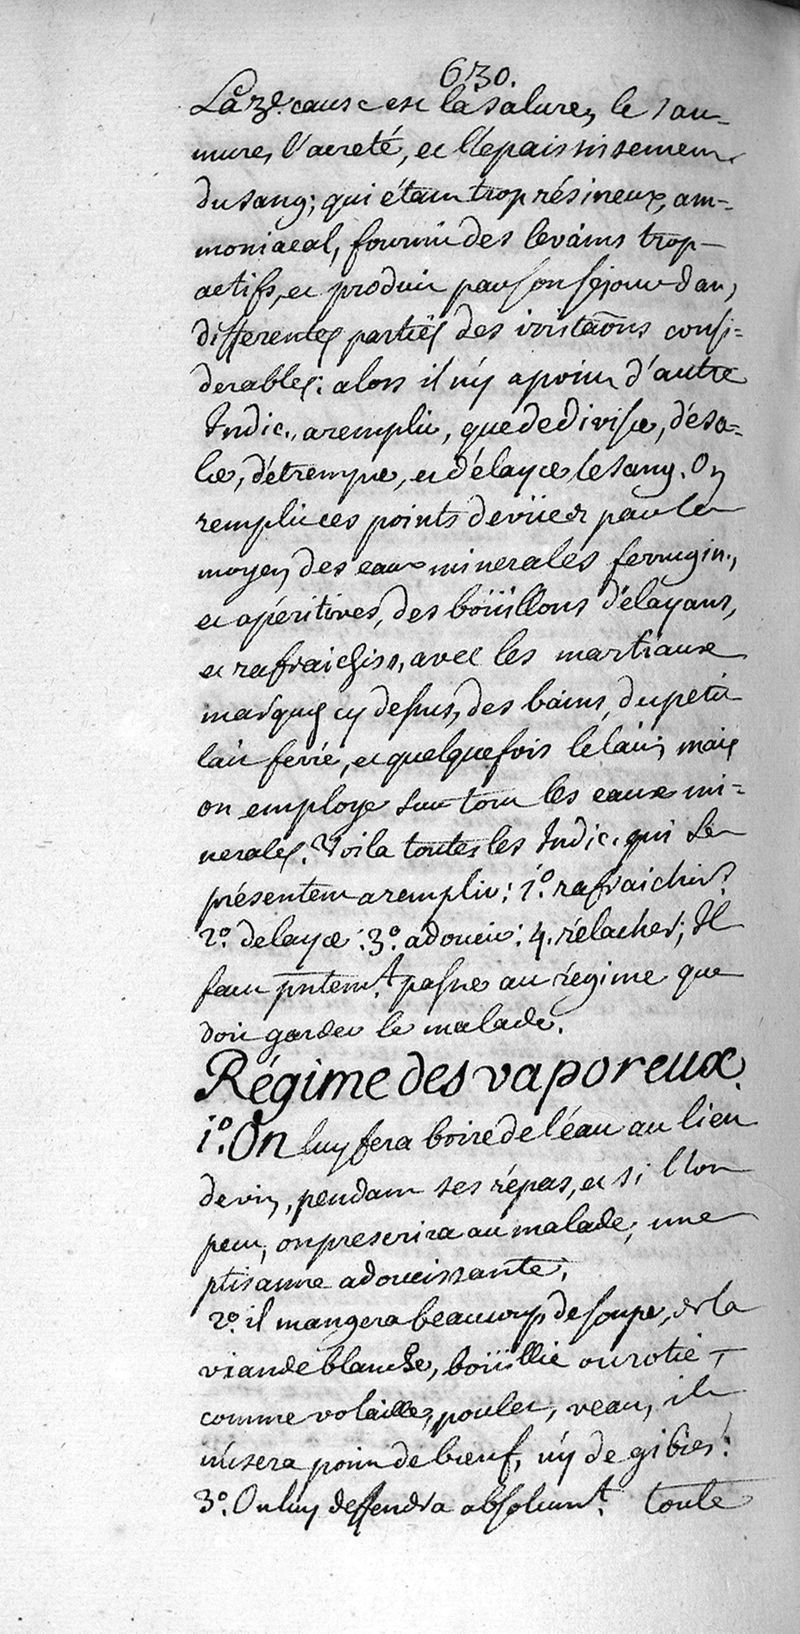 630.
La 3e. cause est la salure, le sau-
mure, l'acreté, et l'épaississement
du sang; qui étant trop résineux, am-
moniacal, fournit des levains trop
actifs, et produit par son séjour dans
differentes partiës des irritaõns consi-
derables: alors il n'y a point d'autre
Indic., a remplir, que de diviser, désa-
ler, détremper, et délayer le sang. On
remplit ces points de vüe par le
moyen des eaux minerales ferrugin.,
et apéritives, des boüillons délayans,
et rafraichiss, avec les martiaux
marqués cy dessus, des bains, du petit
lait ferré, et quelquefois le lait; mais
on employe sur tout les eaux mi-
nerales. Voila toutes les Indic. qui se
présentent a remplir: 1°. rafraichir:
2°. delayer: 3°. adoucir: 4. rélacher; Il
faut pntemt. passer au régime que
doit garder le malade.
Régime des vaporeux.
1°. On luy fera boire de l'éau au lieu
de vin, pendant ses répas, et si l'on
peut, on prescrira au malade, une
ptisanne adoucissante.
2°. il mangera beaucoup de soupe, de la
viande blanche, boüillie ou rotie
comme volaille, poulet, veau, il
n'usera point de bœuf, n'y de gibier:
3°. On luy deffendra absolumt. toute